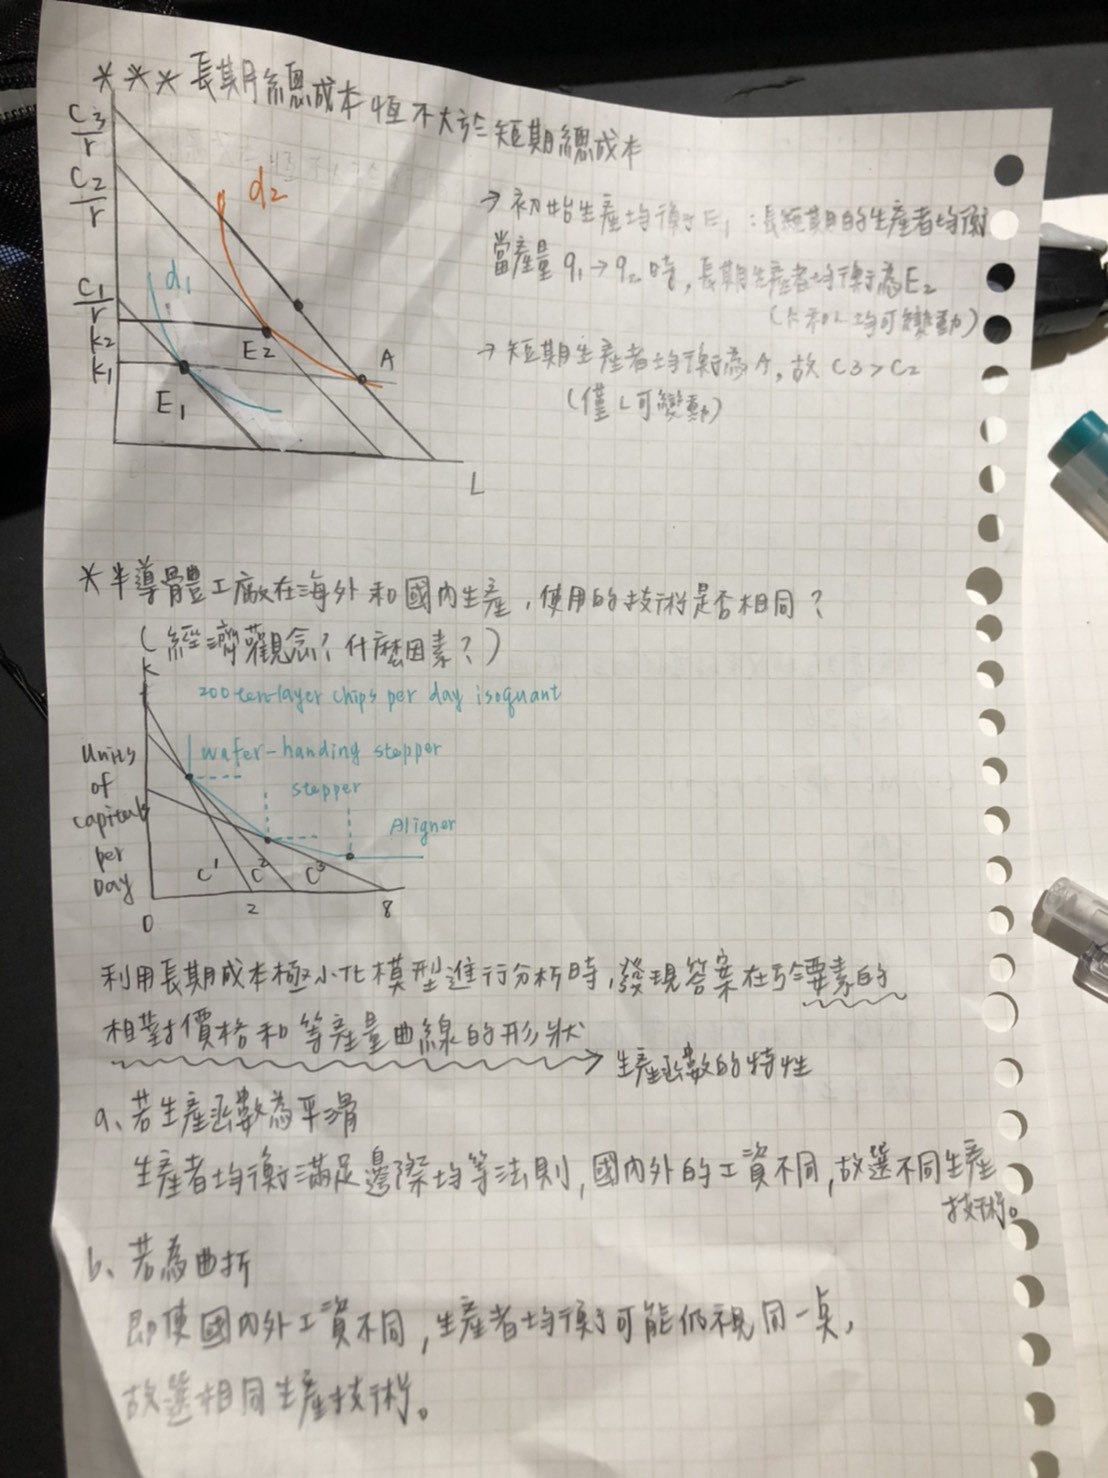 ***長期總成本恆不大於短期總成本
C3/r
C2/r
C1/r
K2
K1
d2
d1
E2
E1
A
L
→初始生產均衡於E1:長短期的生產者均衡
當產量q1→q2時,長期生產者均衡為E2
(K和L均可變動)
→短期生產者均衡為A,故C3>C2
(僅L可變動)
*半導體工廠在海外和國內生產,使用的技術是否相同?
(經濟觀念?什麼因素?)
K
200 ten-layer chips per day isoquant
wafer-handing stepper
stepper
Aligner
Units
of
capitals
per
Day
C1
C2
C3
0
2
8
利用長期成本極小化模型進行分析時,發現答案在於要素的
相對價格和等產量曲線的形狀
→生產函數的特性
a、若生產函數為平滑
生產者均衡滿足邊際均等法則,國內外的工資不同,故選不同生產
技術。
b、若為曲折
即使國內外工資不同,生產者均衡可能仍視同一點,
故選相同生產技術。